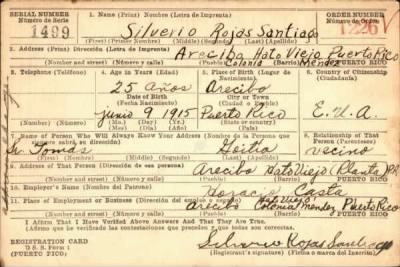 SERIAL NUMBER
Número de Serie
1499
1. Name (Print) Nombre (Letra de Imprenta)
Silverio Rojas Santiago
(First) (Primero) (Middle) (Segundo) (Last) (Apellido)
ORDER NUMBER
Número de Orden
2. Address (Print) Dirección (Letra de Imprenta)
Arecibo Hato Viejo Puerto Rico
Colonia Mendez
(Number and street) (Número y calle)
3. Telephone (Teléfono)
4. Age in Years (Edad)
25 años
Date of Birth
(Fecha Nacimiento)
junio 9 1915
(Mo.) (Day) (Yr.)
(Mes) (Día) (Año)
5. Place of Birth (Lugar de Nacimiento)
Arecibo
City or Town
(Ciudad o Pueblo)
Puerto Rico
6. Country of Citizenship
(Ciudadano de)
E.U.A.
7. Name of Person Who Will Always Know Your Address (Nombre de la Persona que siempre sabrá su dirección)
Sr. Tomás
(First) (Primero) (Middle) (Segundo) (Last) (Apellido)
8. Relationship of That Person
vecino
9. Address of That Person (Dirección de esa persona)
Arecibo Hato Viejo P.R.
(Number and street) (Número y calle)
10. Employer's Name (Nombre del Patrono)
Horacio
11. Place of Employment or Business (Dirección del empleo o negocio)
Hato Viejo
Arecibo Colonia Mendez Puerto Rico
(Number and street) (Número y calle)
I Affirm That I Have Verified Above Answers And That They Are True.
(Afirmo que he verificado las contestaciones que preceden y que todas son correctas.
REGISTRATION CARD
D S S. Form 1
(PUERTO RICO)
Silverio Rojas Santiago
(Registrant's signature) (Firma del Inscrito)